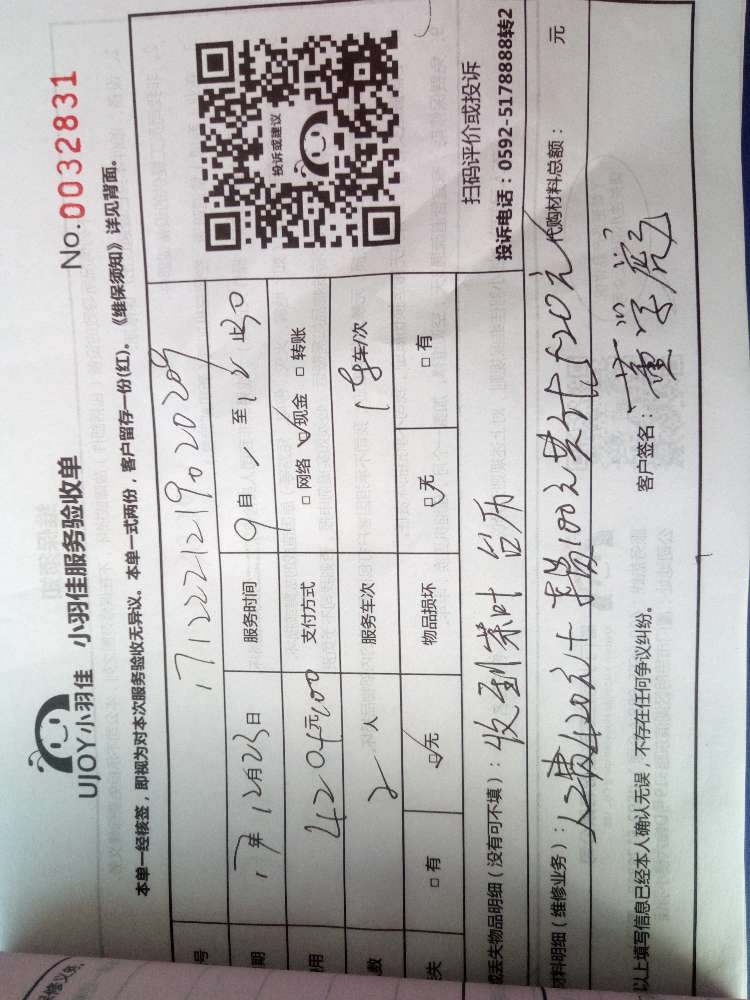 UJOY小羽佳 小羽佳服务验收单 No.0032831
本单一经核签，即视为对本次服务验收无异议。本单一式两份，客户留存一份(红)。《维保须知》详见背面。
号 171222121902029
期 17年12月23日 服务时间 9自 至12
用 元 支付方式 □网络 ☑现金 □转账
数 2人 服务车次 1车/次
失 □有 ☑无 物品损坏 ☑无 □有
投诉或建议
扫码评价或投诉
投诉电话：0592-5178888转2
或丢失物品明细（没有可不填）：收到茶叶 台历
材料明细（维修业务）：人工费420元+ 100元共计520元 代购材料总额： 元
以上填写信息已经本人确认无误，不存在任何争议纠纷。 客户签名：董学